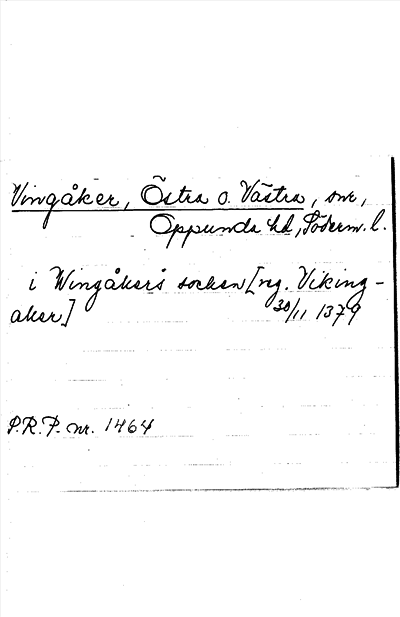 Vingåker, Östra o. Västra, snr,
Oppunda hd, Söderm. l.
i Wingåkers socken [reg. Viking-
aker] 30/11 1379
P.R.P. nr. 1464